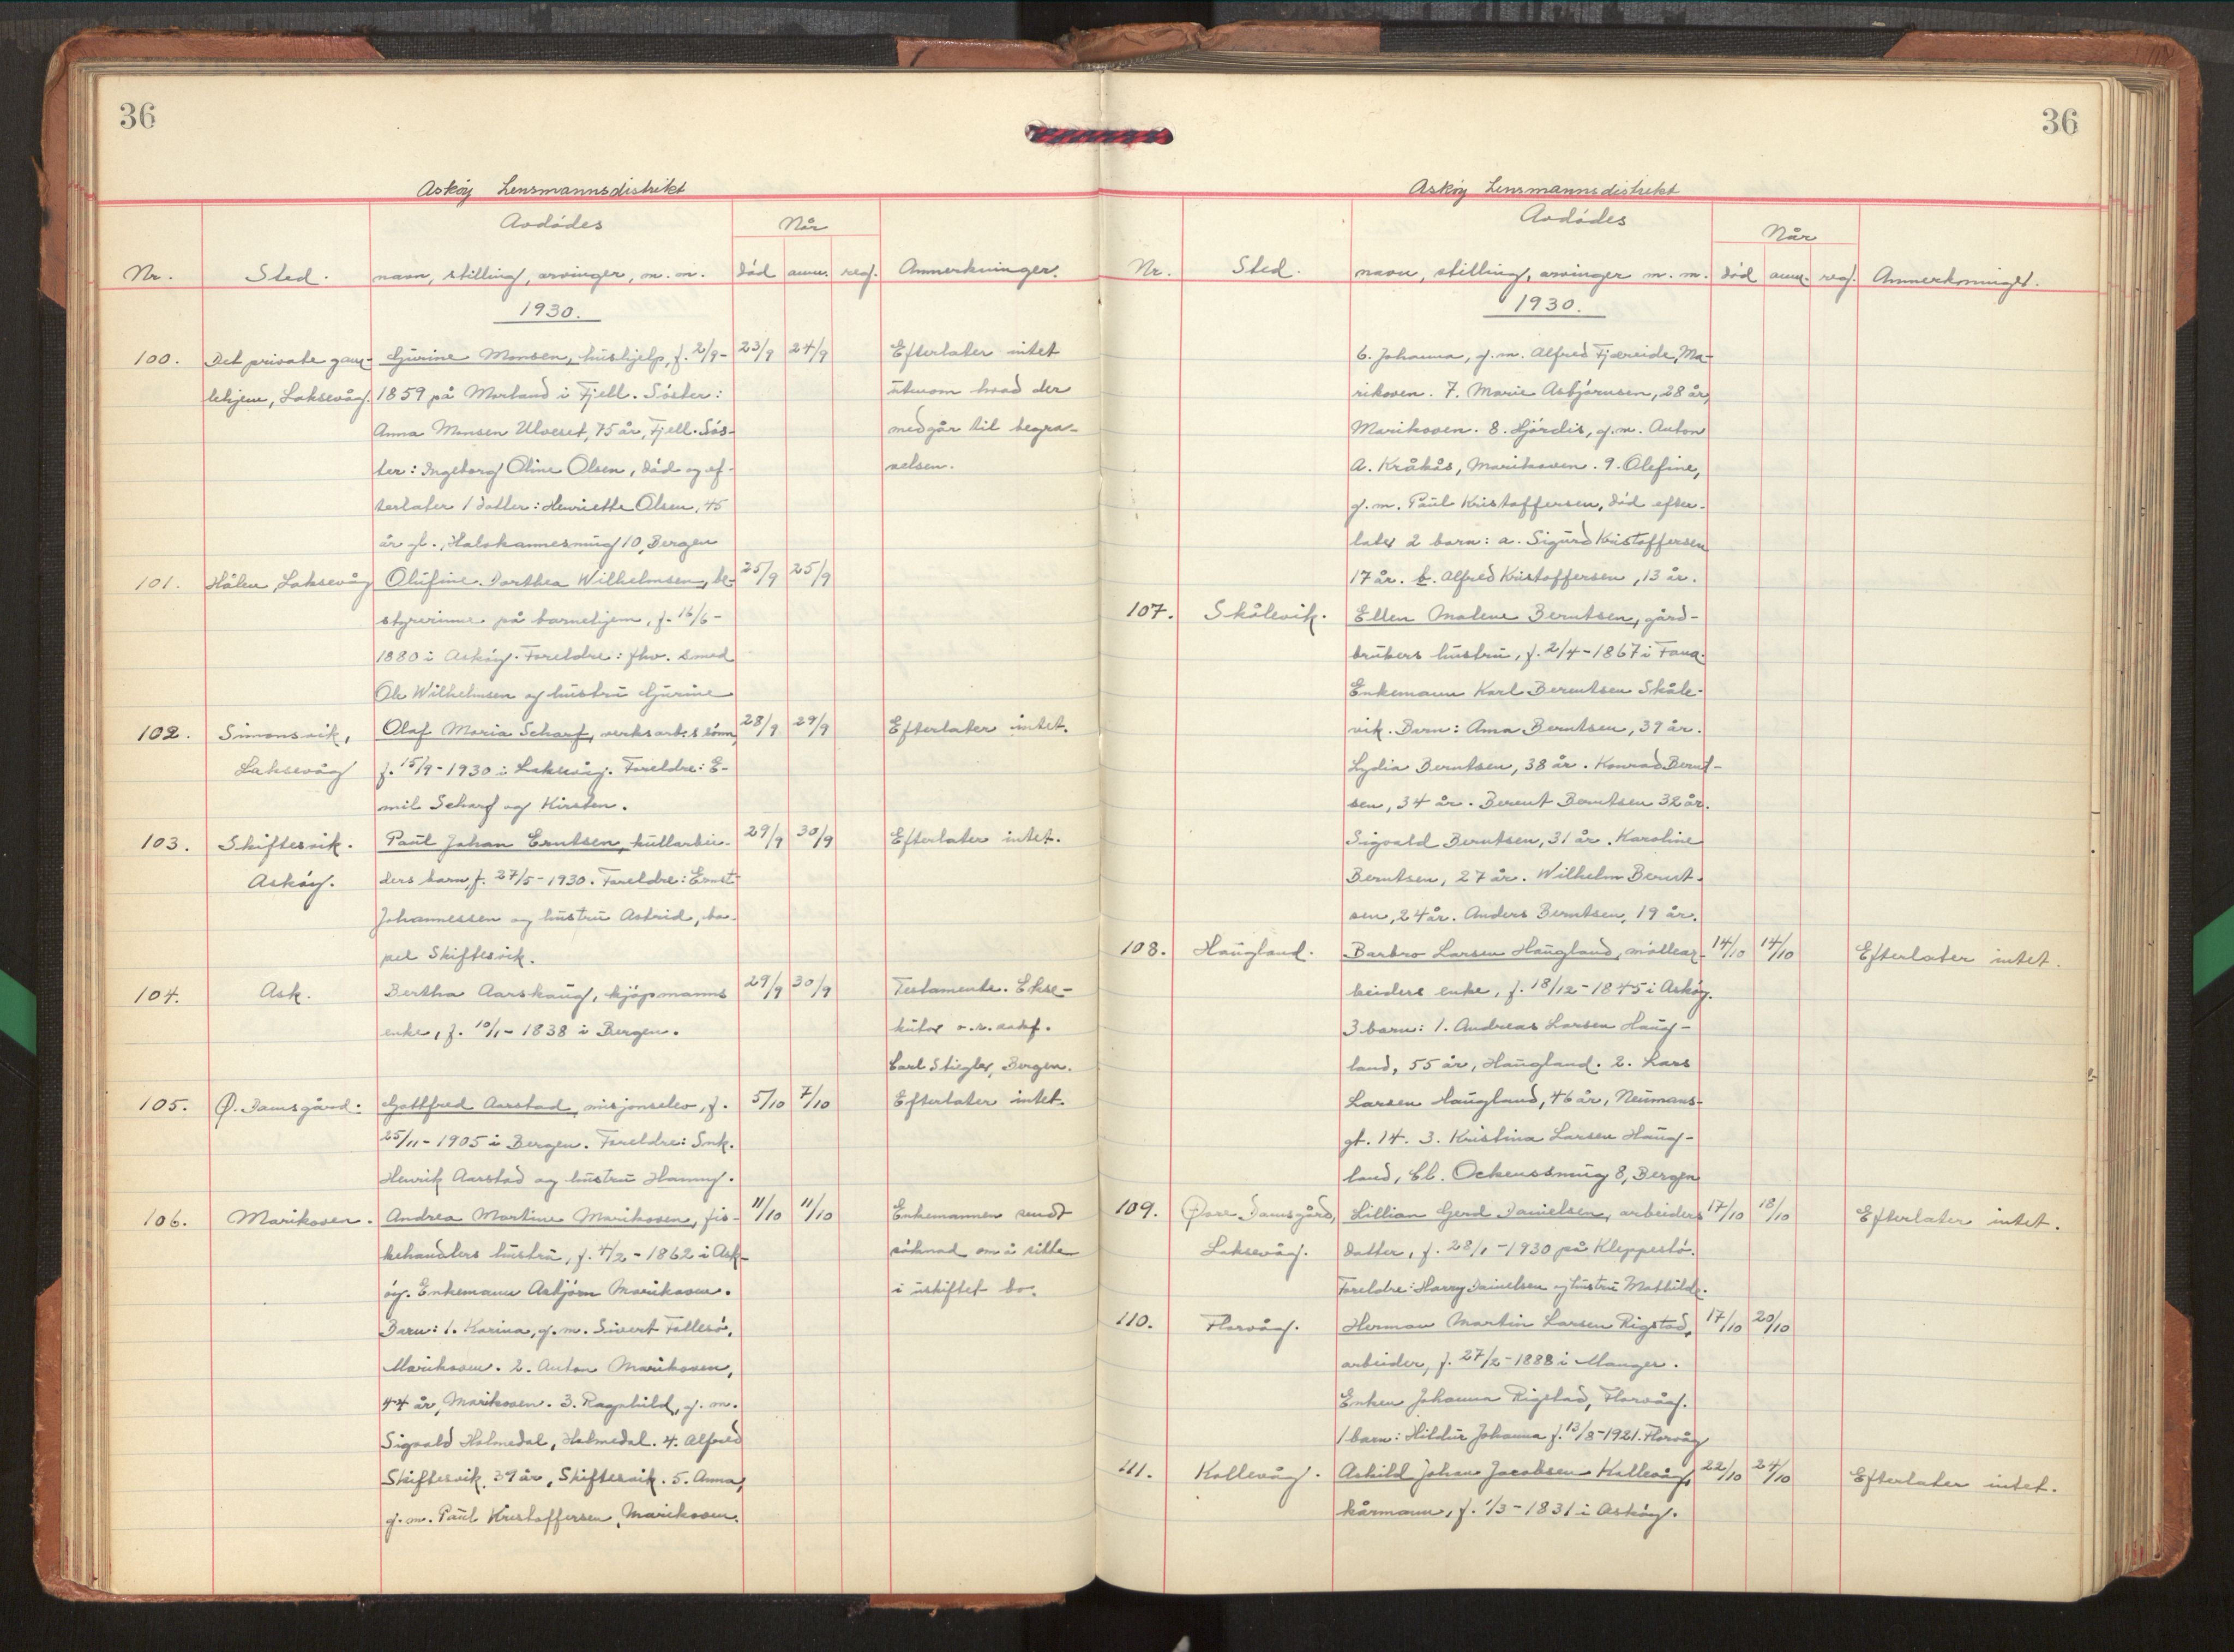 36
Askøy Lensmannsdistrikt
Avdødes
Når
Nr. Sted. navn, stilling, arvinger, m. m. død anm. reg. Anmerkninger.
1930.
100. Det private gam- Gurine Monsen, hushjelp, f. 2/9- 23/9 24/9 Efterlater intet
lehjem, Laksevåg. 1859 på Morland i Fjell. Søster: utenom hvad der
Anna Monsen Ulveset, 75 år, Fjell. Søs- medgår til begra-
ter: Ingeborg Oline Olsen, død og ef- velsen.
terlater 1 datter: Henriette Olsen, 45
år gl., Halvkannesmug 10, Bergen
101. Hålen Laksevåg Olufine Dorthea Wilhelmsen, be- 25/9 25/9
styrerinne på barnehjem, f. 16/6-
1880 i Askøy. Foreldre: fhv. smed
Ole Wilhelmsen og hustru Gurine
102. Simonsvik, Olaf Maria Scharf, verksarb.s sønn, 28/9 29/9 Efterlater intet.
Laksevåg f. 15/9-1930 i Laksevåg. Foreldre: E-
mil Scharf og Kirsten.
103. Skiftesvik. Paul Johan Erntsen, kullarbei- 29/9 30/9 Efterlater intet.
Askøy. ders barn, f. 27/5-1930. Foreldre: Ernst
Johannessen og hustru Astrid, bo-
pel Skiftesvik.
104. Ask. Bertha Aarskaug, kjøpmanns 29/9 30/9 Testamente. Ekse-
enke, f. 10/1-1838 i Bergen. kutor o.r.sakf.
Carl Stiegler, Bergen.
105. Ø. Damsgård. Gottfred Aarstad, misjonselev, f. 5/10 7/10 Efterlater intet.
25/11-1905 i Bergen. Foreldre: Snk.
Henrik Aarstad og hustru Hanny.
106. Marikoven. Andrea Martine Marikoven, fis- 11/10 11/10 Enkemannen sendt
kehandlers hustru, f. 4/2-1862 i Ask- søknad om å sitte
øy. Enkemann Asbjørn Marikoven. i uskiftet bo.
Barn: 1. Karina, g.m. Sivert Follesø,
Marikoven. 2. Anton Marikoven,
44 år, Marikoven. 3. Ragnhild, g.m.
Sigvald Holmedal, Holmedal. 4. Alfred
Skiftesvik, 39 år, Skiftesvik. 5. Anna,
g.m. Paul Kristoffersen, Marikoven.
36
Askøy Lensmannsdistrikt
Avdødes
Når
Nr. Sted. navn, stilling, arvinger m. m. død anm. reg. Anmerkninger.
1930.
6. Johanna, g.m. Alfred Fjæreide, Ma-
rikoven. 7. Marie Asbjørnsen, 28 år,
Marikoven. 8. Hjørdis, g.m. Anton
A. Kråkås, Marikoven. 9. Olefine,
g.m. Paul Kristoffersen, død efter-
later 2 barn: a. Sigurd Kristoffersen
17 år. b. Alfred Kristoffersen, 13 år.
107. Skålevik. Ellen Malene Berntsen, gård-
brukers hustru, f. 2/4-1867 i Fana.
Enkemann Karl Berentsen Skåle-
vik. Barn: Anna Berntsen, 39 år.
Lydia Berntsen, 38 år. Konrad Bernt-
sen, 34 år. Berent Berntsen 32 år.
Sigvald Berntsen, 31 år. Karoline
Berntsen, 27 år. Wilhelm Bernt-
sen, 24 år. Anders Berntsen, 19 år.
108. Haugland. Barbro Larsen Haugland, møllear- 14/10 14/10 Efterlater intet.
beiders enke, f. 18/12-1845 i Askøy.
3 barn: 1. Andreas Larsen Haug-
land, 55 år, Haugland. 2. Lars
Larsen Haugland, 46 år, Neumans-
gt. 14. 3. Kristina Larsen Haug-
land, Cl. Ockenssmug 8, Bergen
109. Øvre Damsgård, Lillian Gerd Danielsen, arbeiders 17/10 18/10 Efterlater intet.
Laksevåg. datter, f. 28/1-1930 på Kleppestø.
Foreldre: Harry Danielsen og hustru Mathilde.
110. Florvåg. Herman Martin Larsen Rigstad, 17/10 20/10
arbeider, f. 27/2-1888 i Manger.
Enken Johanna Rigstad, Florvåg.
1 barn: Hildur Johanna f. 13/8-1921. Florvåg
111. Kollevåg. Askild Johan Jacobsen Kollevåg, 22/10 24/10 Efterlater intet.
kårmann, f. 1/3-1831 i Askøy.